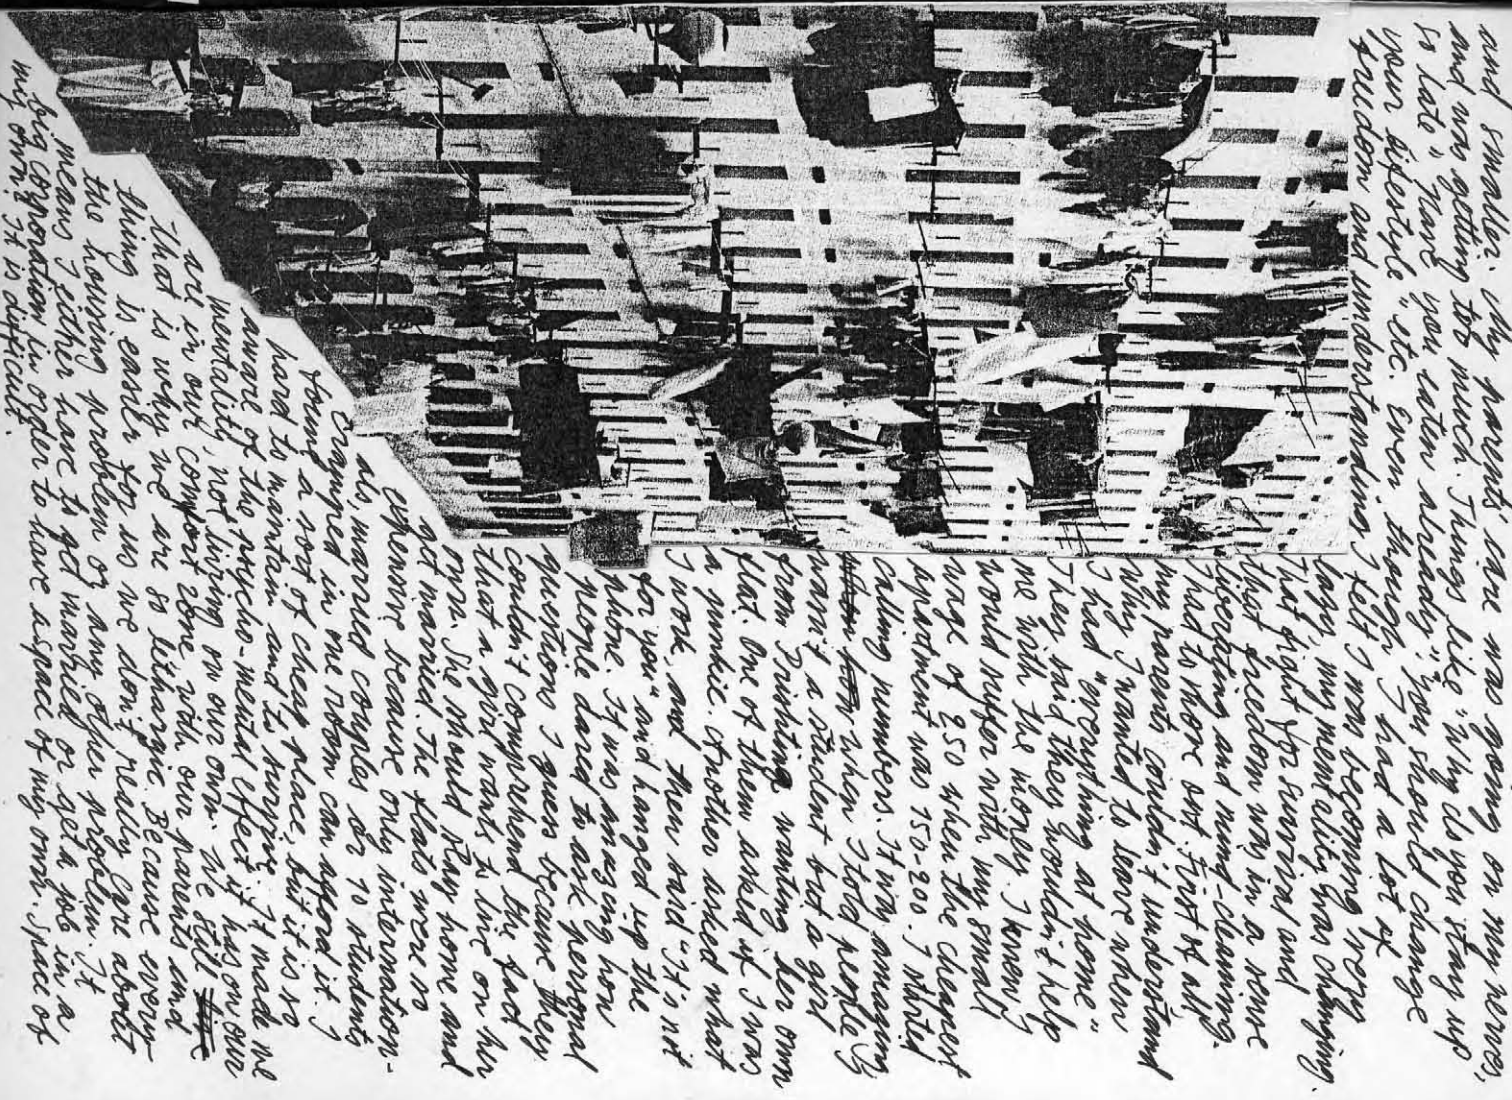 and smaller. My parents were also going on my nerves,
and was getting too much. Things like "why do you stay up
so late", "have you eaten already", "you should change
your lifestyle" etc. Even though I had a lot of
freedom and understanding, I felt I was becoming very
lazy, my mentality was changing.
That fight for survival and
that freedom was in a sense
liberating and mind-cleaning.
I had to move out. First of all,
my parents couldn't understand
why I wanted to leave when
I had "everything at home."
They said they wouldn't help
me with the money. I knew I
would suffer with my small
wage of 250 when the cheapest
apartment was 150-200. I started
calling numbers. It was amazing
when I told people I
wasn't a student but a girl
from Priština wanting her own
flat. One of them asked if I was
a junkie. Another asked what
I work, and then said "It's not
for you" and hanged up the
phone. It was amazing how
people dared to ask personal
question I guess because they
couldn't comprehend the fact
that a girl wants to live on her
own. She should stay home and
get married. The flats were so
expensive because only internation-
als, married couples or 20 students
cramped in one room can afford it. I
found a sort of cheap place, but it is so
hard to maintain and to survive. It made me
aware of the psycho-mental effect it has on our
mentality, not living on our own. We still
are in our comfort zone with our parents and
that is why we are so lethargic. Because every-
thing is easier for us we don't really care about
the housing problem or any other problem. It
means I either have to get married or get a job in a
big corporation in order to have a space of my own. Space of
my own? It is difficult.